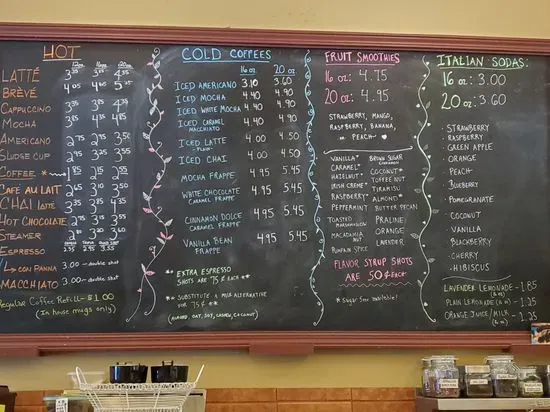 HOT
12oz 16oz 20oz
LATTÉ 3.35 3.85 4.35
BRÈVÉ 4.05 4.65 5.25
CAPPUCCINO 3.35 3.85 4.35
MOCHA 3.85 4.35 4.85
AMERICANO 2.75 2.95 3.50
SLUDGE CUP 2.95 3.25 3.55
COFFEE * 1.85
CAFÉ AU LAIT
CHAI LATTE
HOT CHOCOLATE
STEAMER
ESPRESSO
CON PANNA 3.00 - double shot
MACCHIATO 3.00 - double shot
Regular Coffee Refill - $1.00
(In house mugs only)
COLD COFFEES
16 oz 20 oz
ICED AMERICANO 3.10 3.60
ICED MOCHA 4.40 4.90
ICED WHITE MOCHA 4.40 4.90
ICED CARAMEL MACCHIATO 4.40 4.90
ICED LATTE 4.00 4.50
- PLAIN -
ICED CHAI 4.00 4.50
MOCHA FRAPPE 4.95 5.45
WHITE CHOCOLATE 4.95 5.45
CARAMEL FRAPPE
CINNAMON DOLCE 4.95 5.45
CARAMEL FRAPPE
VANILLA BEAN 4.95 5.45
FRAPPE
** EXTRA ESPRESSO
SHOTS ARE 75¢ EACH **
** SUBSTITUTE A MILK ALTERNATIVE
FOR 75¢ **
(ALMOND, OAT, SOY, CASHEW, COCONUT)
FRUIT SMOOTHIES
16 oz: 4.75
20 oz: 4.95
STRAWBERRY, MANGO,
RASPBERRY, BANANA,
PEACH
VANILLA* BROWN SUGAR CINNAMON
CARAMEL* COCONUT*
HAZELNUT* TOFFEE NUT
IRISH CREME* TIRAMISU
RASPBERRY* ALMOND*
PEPPERMINT BUTTER PECAN
TOASTED MARSHMALLOW PRALINE
MACADAMIA NUT ORANGE
PUMPKIN SPICE LAVENDER
FLAVOR SYRUP SHOTS
ARE 50¢ EACH
* Sugar free available!
ITALIAN SODAS:
16 oz: 3.00
20 oz: 3.60
· STRAWBERRY
RASPBERRY
GREEN APPLE
ORANGE
PEACH
BLUEBERRY
POMEGRANATE
COCONUT
VANILLA
BLACKBERRY
· CHERRY
· HIBISCUS
LAVENDER LEMONADE - 1.85
PLAIN LEMONADE - 1.25
ORANGE JUICE/MILK - 1.25